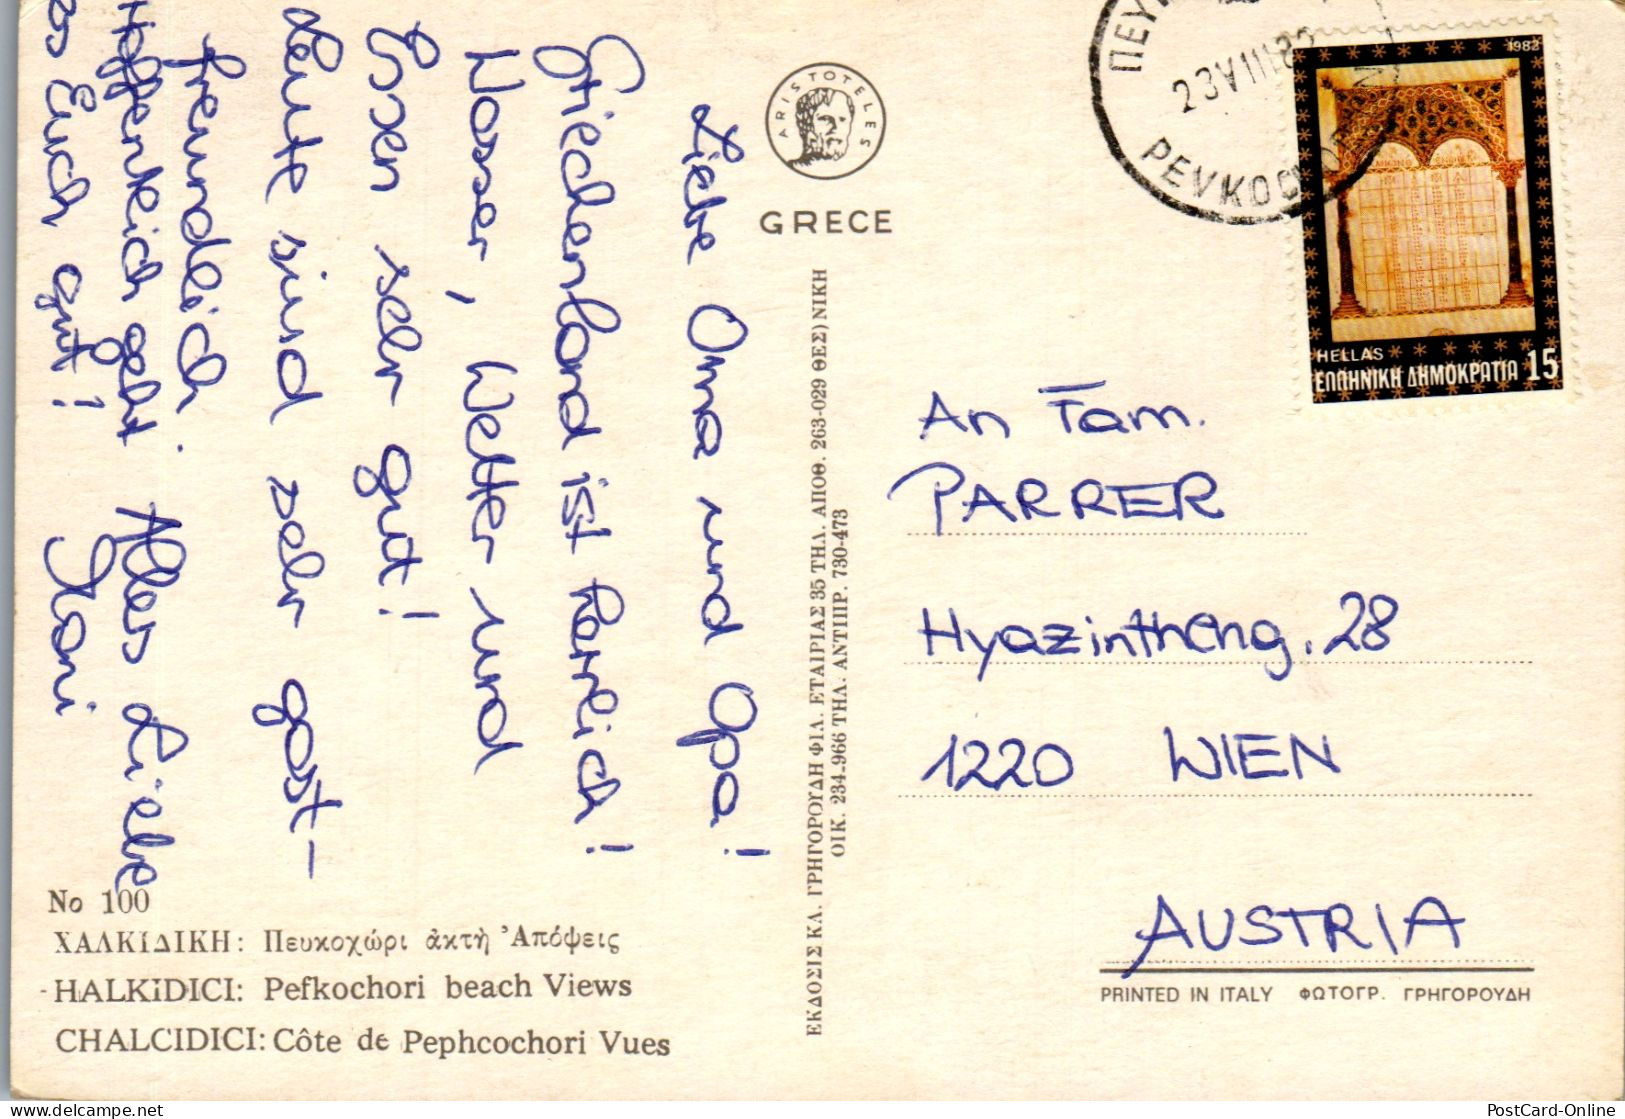 Liebe Oma und Opa!
Griechenland ist herrlich!
Wasser, Wetter und
Essen sehr gut!
Leute sind sehr gast-
freundlich.
Hoffentlich geht
es Euch gut! Alles Liebe
ARISTOTELES
GRECE
ΕΚΔΟΣΙΣ ΚΛ. ΓΡΗΓΟΡΟΥΔΗ ΦΙΛ. ΕΤΑΙΡΙΑΣ 35 ΤΗΛ. ΑΠΟΘ. 263-029 ΘΕΣ)ΝΙΚΗ
ΟΙΚ. 234-966 ΤΗΛ. ΑΝΤΙΠΡ. 730-473
23 VIII 82
1982
HELLAS
ΕΛΛΗΝΙΚΗ ΔΗΜΟΚΡΑΤΙΑ 15
An Fam.
PARRER
Hyazintheng. 28
1220 WIEN
AUSTRIA
PRINTED IN ITALY ΦΩΤΟΓΡ. ΓΡΗΓΟΡΟΥΔΗ
No 100
ΧΑΛΚΙΔΙΚΗ: Πευκοχώρι ἀκτή Ἀπόψεις
HALKIDICI: Pefkochori beach Views
CHALCIDICI: Côte de Pephcochori Vues
delcampe.net
PostCard-Online